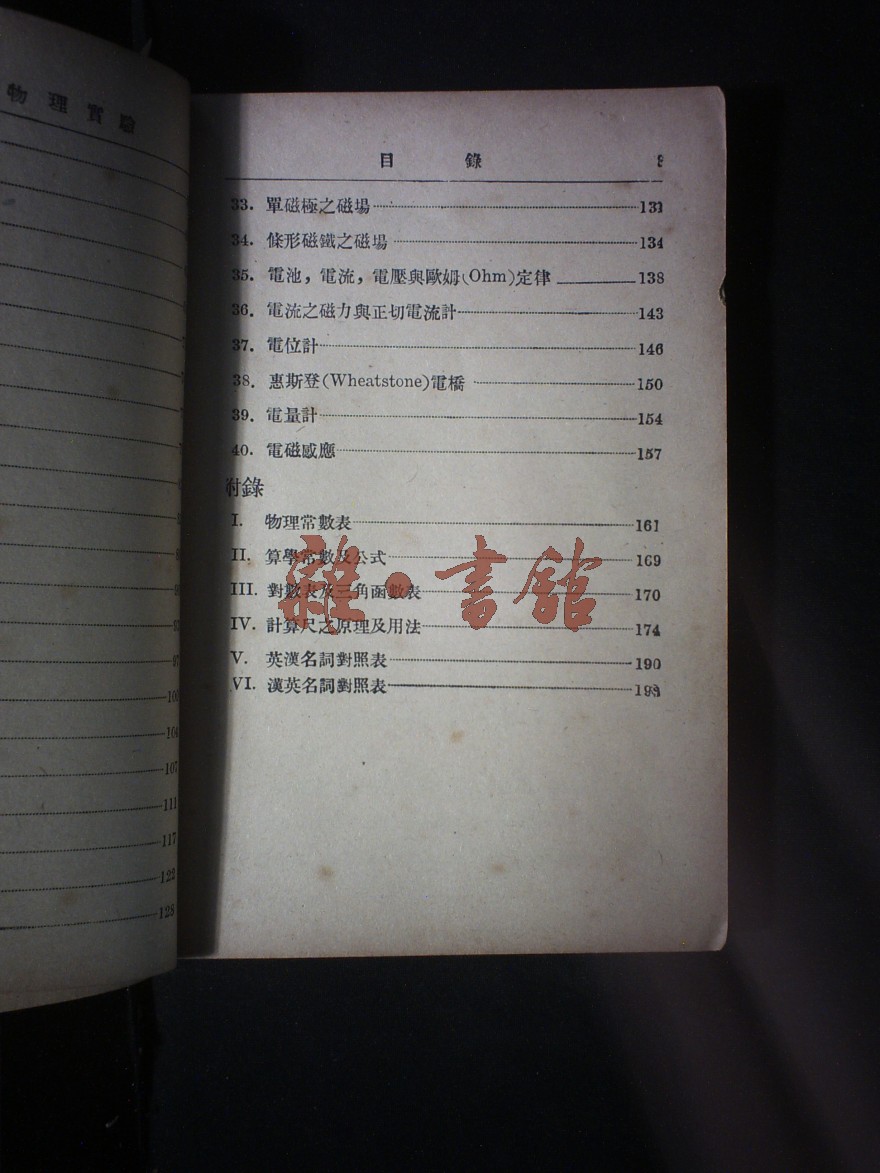 物理實驗
97
100
104
107
111
117
122
128
目錄
33. 單磁極之磁場 131
34. 條形磁鐵之磁場 134
35. 電池，電流，電壓與歐姆(Ohm)定律 138
36. 電流之磁力與正切電流計 143
37. 電位計 146
38. 惠斯登(Wheatstone)電橋 150
39. 電量計 154
40. 電磁感應 157
附錄
I. 物理常數表 161
II. 算學常數及公式 169
III. 對數表及三角函數表 170
IV. 計算尺之原理及用法 174
V. 英漢名詞對照表 190
VI. 漢英名詞對照表
雜·書館